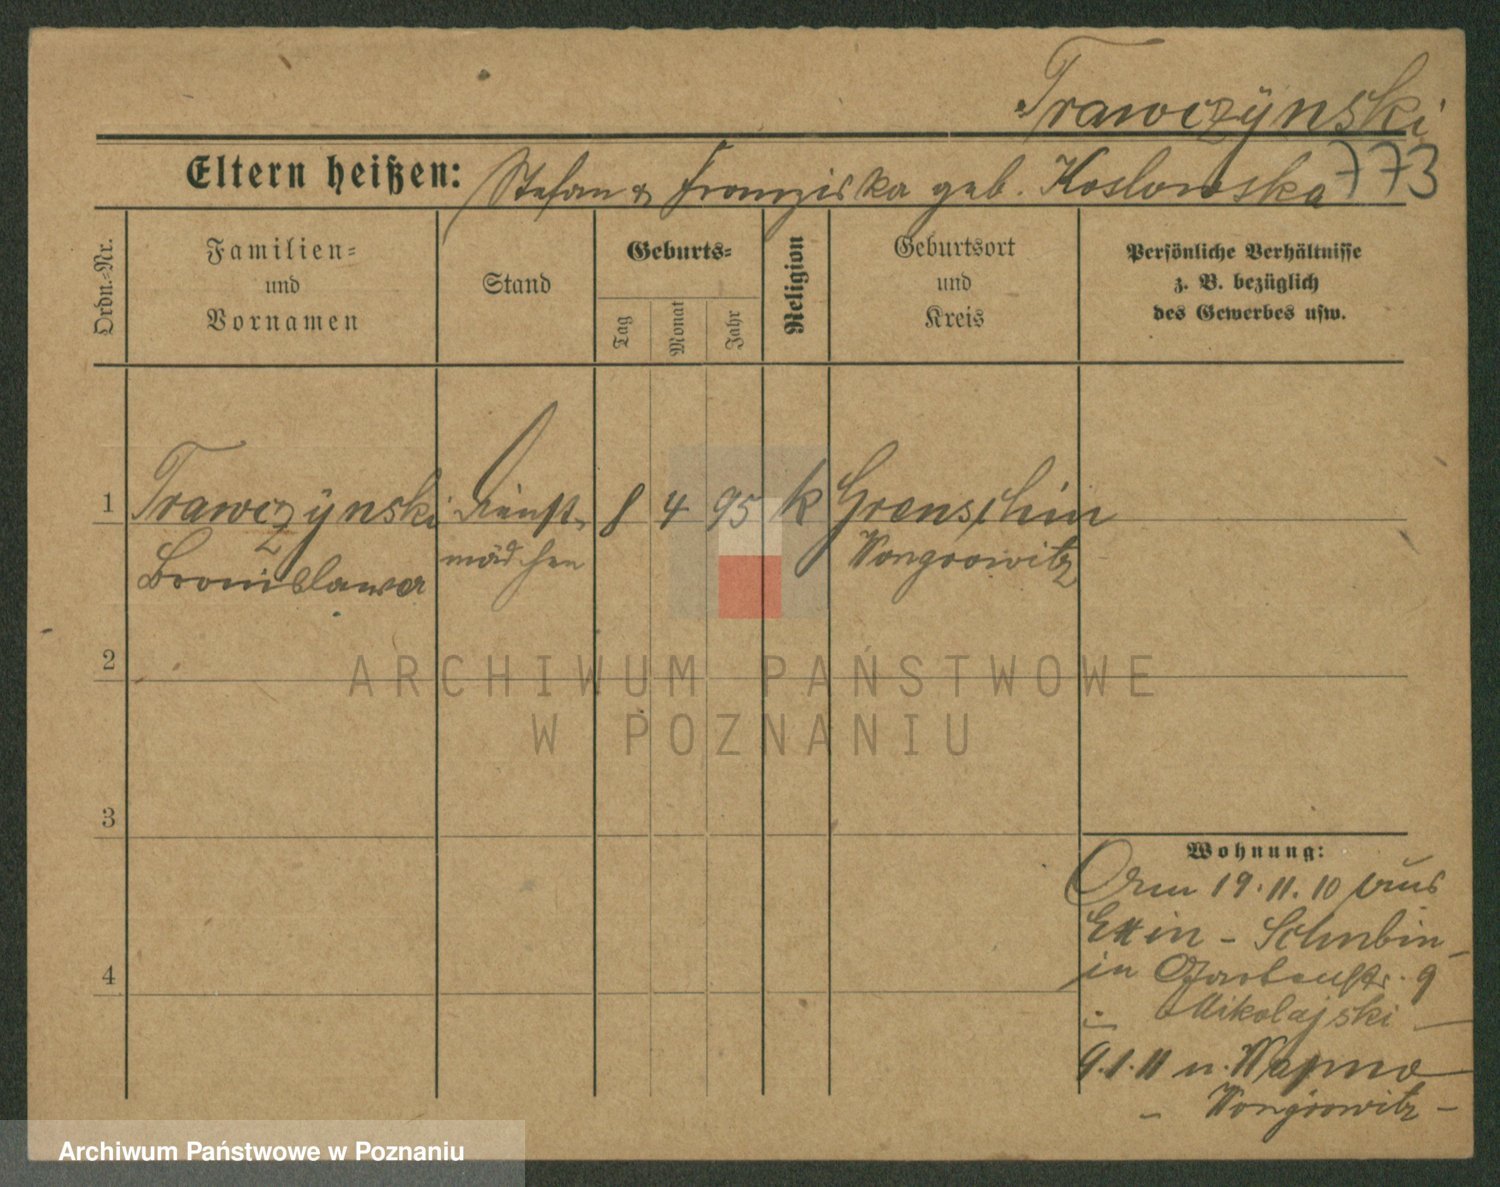 Trawczynski
773
Eltern heißen: Stefan & Franziska geb. Koslowska
Ordn.-Nr.
Familien-
und
Vornamen
Stand
Geburts-
Tag
Monat
Jahr
Religion
Geburtsort
und
Kreis
Persönliche Verhältnisse
z. B. bezüglich
des Gewerbes usw.
1 Trawczynski Dienst- 8 4 95 k Grenschin
Bronislawa mädchen Wongrowitz
2
3
4
Wohnung:
Am 19.11.10 aus
Exin - Schubin -
in 9
Mikolajski
9.1.11 n. Wapno
- Wongrowitz -
ARCHIWUM PAŃSTWOWE
W POZNANIU
Archiwum Państwowe w Poznaniu